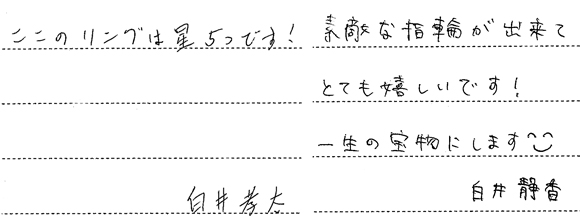 ここのリングは星5つです!
白井孝太
素敵な指輪が出来て
とても嬉しいです!
一生の宝物にします
白井静香